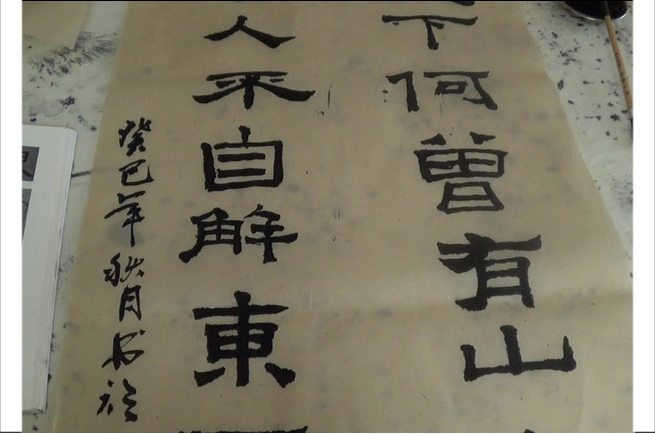 下何曾有山
人自解東
癸巳年秋月书於